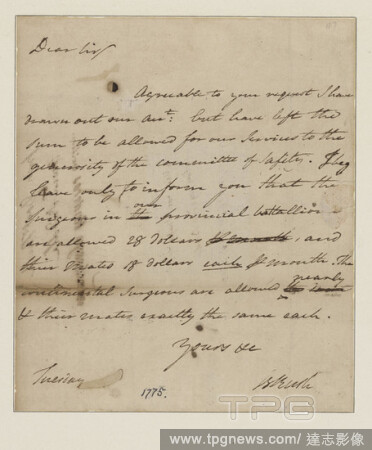 Dear Sir
Agreeable to your request I have
drawn out our acct. but have left the
sum to be allowed for our services to the
generosity of the committee of Safety. I beg
leave only to inform you that the
Surgeons in our provincial battallion
are allowed 28 dollars and
their mates 18 dollars each month. The
continental Surgeons are allowed nearly
& their mates exactly the same each.
Yours &c
Tuesday 1775. B Rush
TPG
www.tpgnews.com / 達志影像